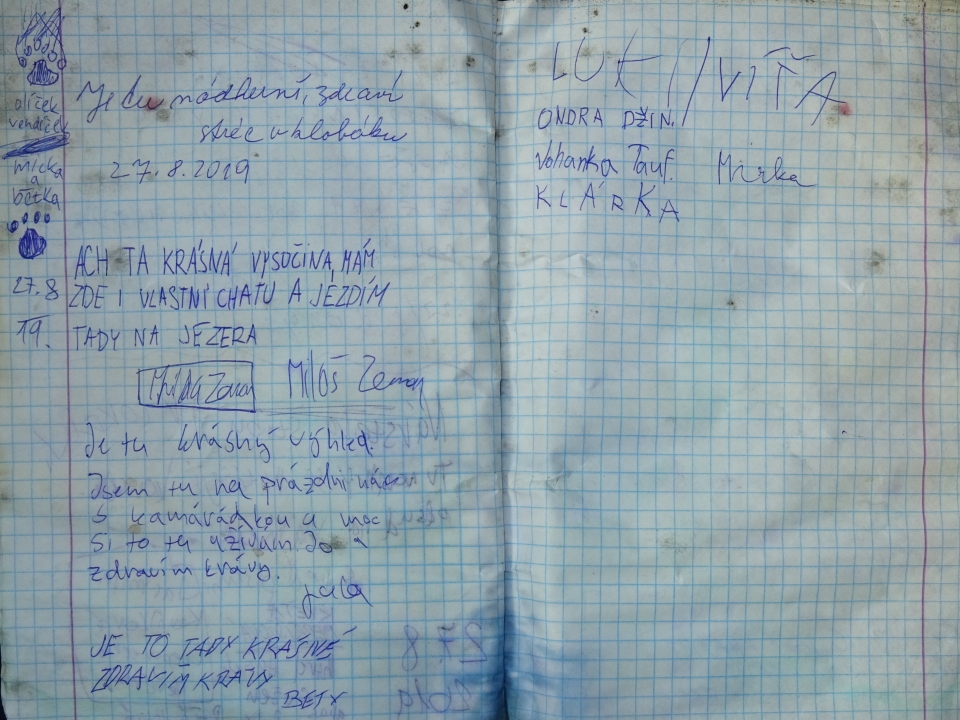 olíček
vendíček
micka
a
bětka
Je tu nádherně, zdraví
strýc v klobouku
27.8.2019
ACH TA KRÁSNÁ VYSOČINA, MÁM
27.8 ZDE I VLASTNÍ CHATU A JEZDÍM
19. TADY NA JEZERA
Miloš Zeman
Je tu krásný výhled.
Jsem tu na prázdninách
s kamárádkou a moc
si to tu užívám. Jo a
zdravím krávy.
JE TO TADY KRÁSNÉ
ZDRAVÍM KRÁVY
BETY
LUKI / VÍŤA
ONDRA DŽIN.
Vohanka Tauf. Mirka
KLÁRKA